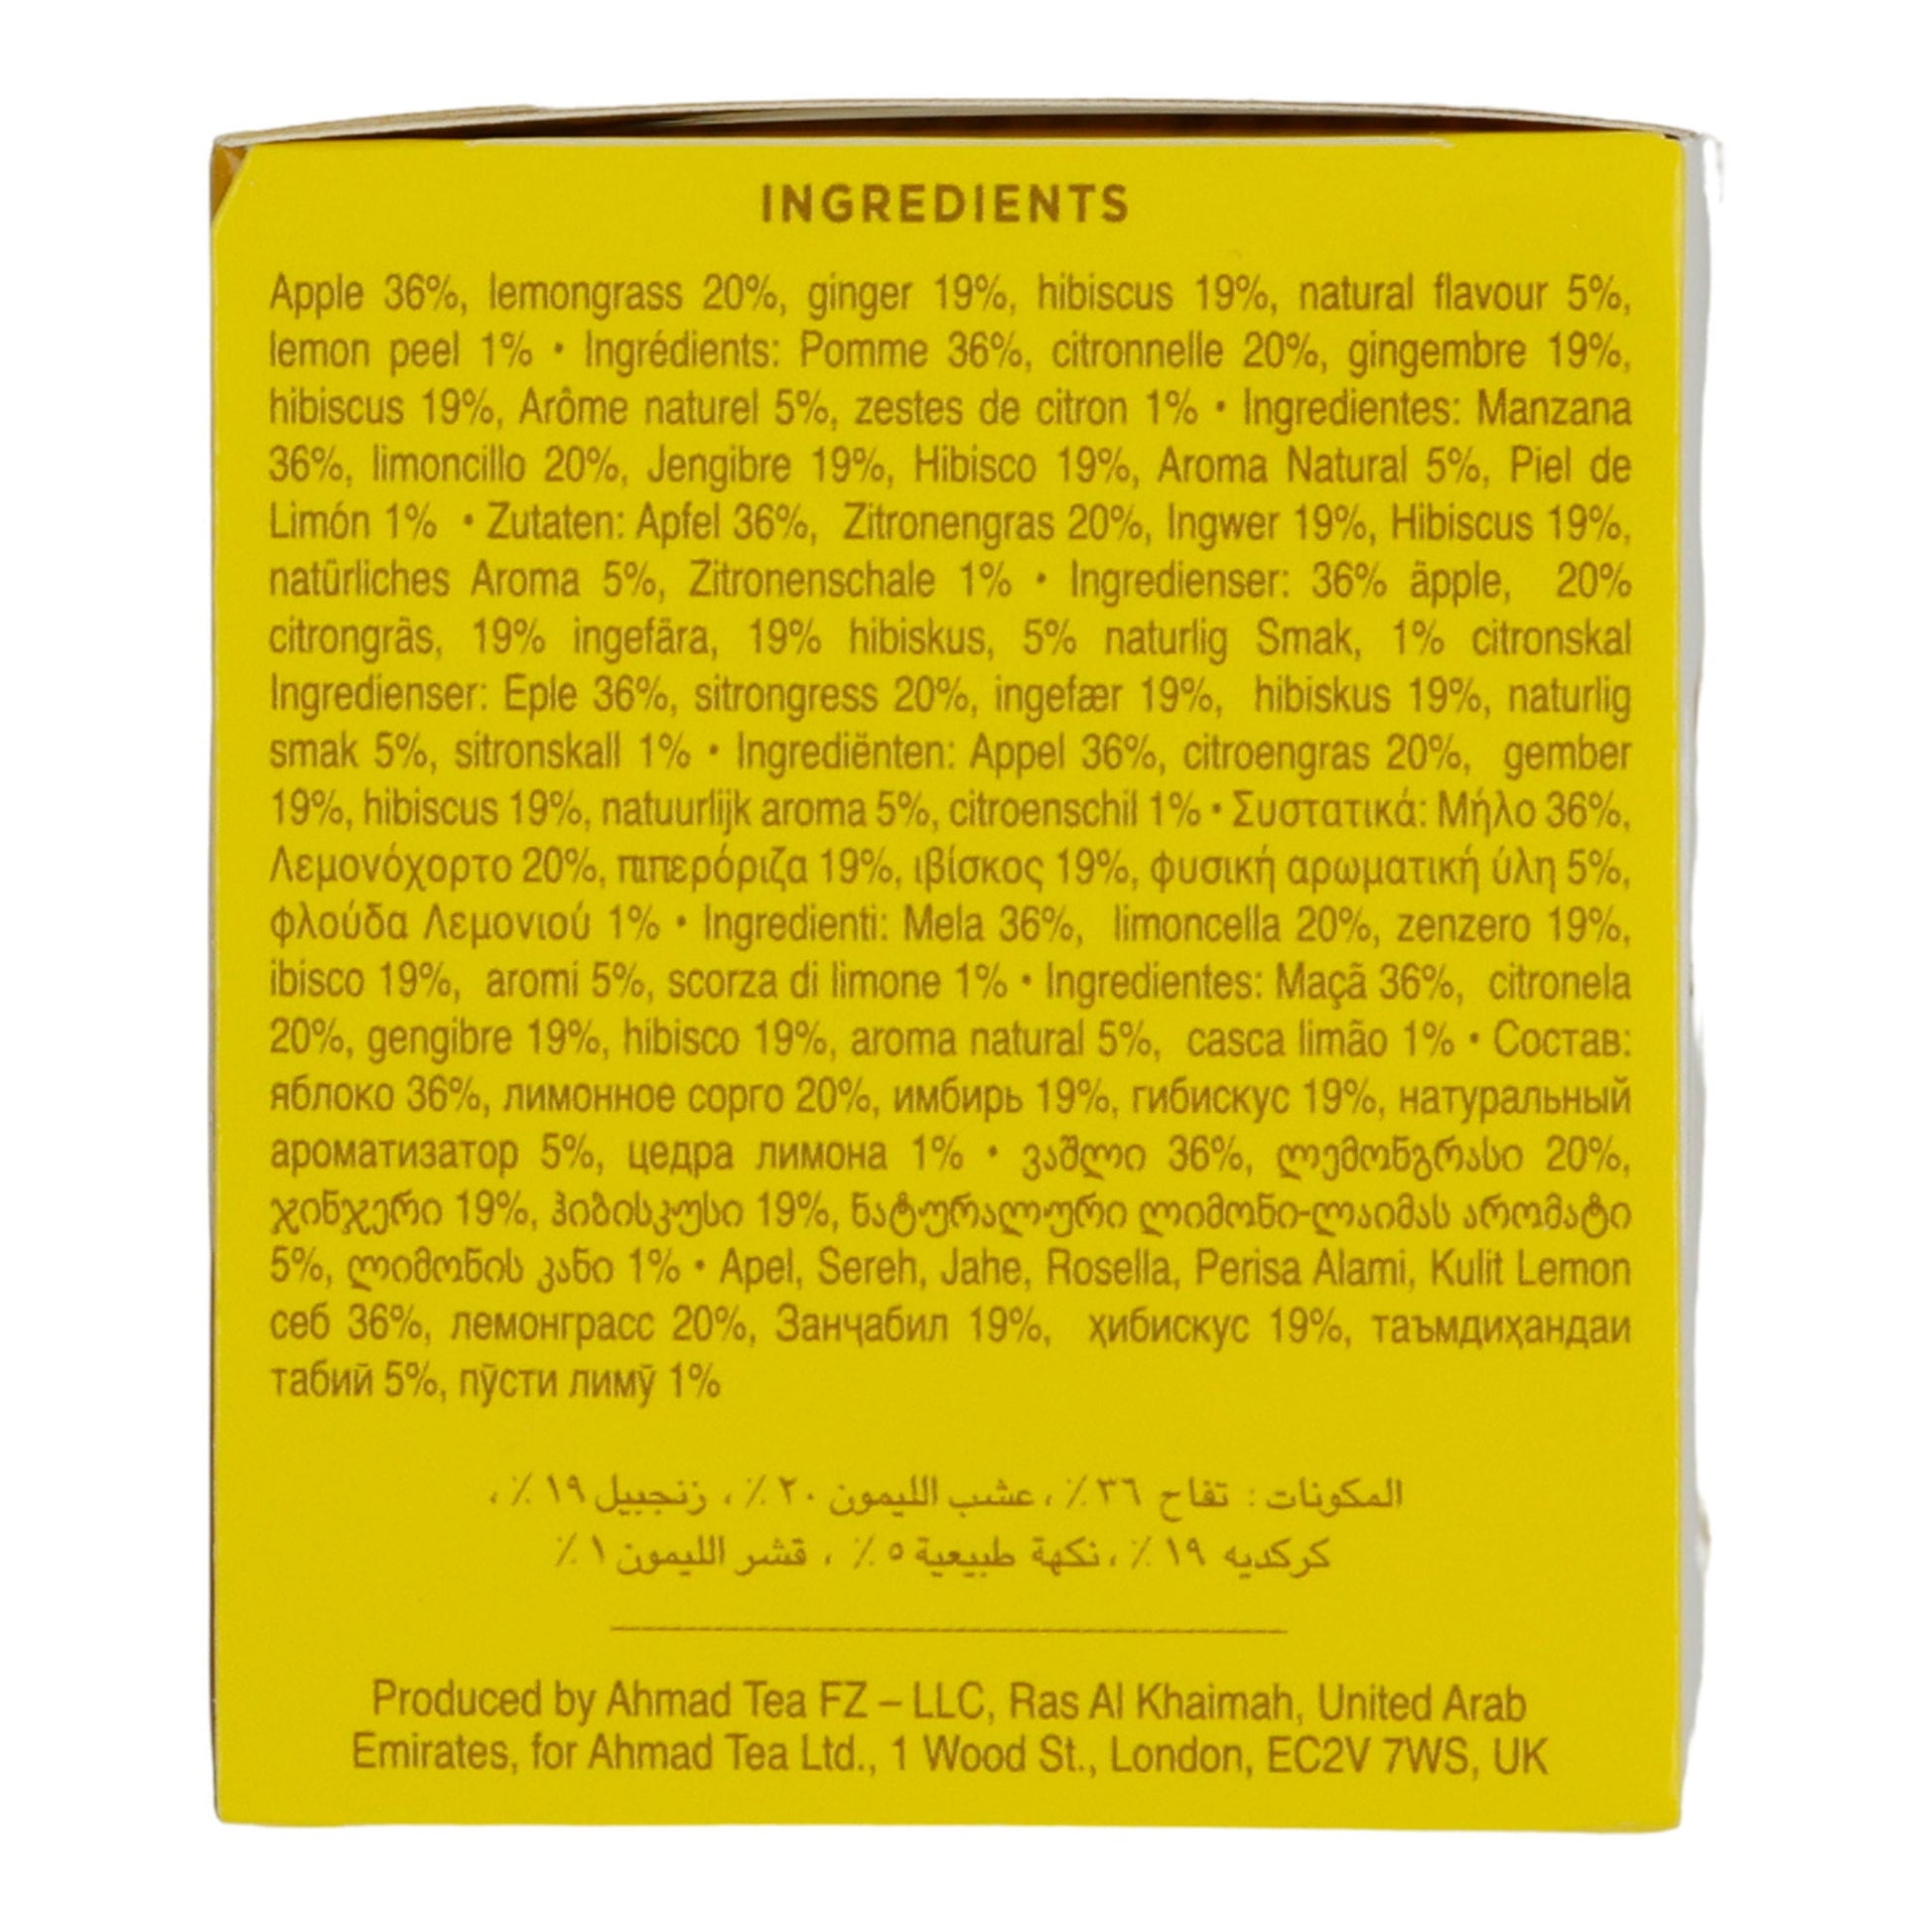 INGREDIENTS
Apple 36%, lemongrass 20%, ginger 19%, hibiscus 19%, natural flavour 5%,
lemon peel 1% • Ingrédients: Pomme 36%, citronnelle 20%, gingembre 19%,
hibiscus 19%, Arôme naturel 5%, zestes de citron 1% • Ingredientes: Manzana
36%, limoncillo 20%, Jengibre 19%, Hibisco 19%, Aroma Natural 5%, Piel de
Limón 1% • Zutaten: Apfel 36%, Zitronengras 20%, Ingwer 19%, Hibiscus 19%,
natürliches Aroma 5%, Zitronenschale 1% • Ingredienser: 36% äpple, 20%
citrongräs, 19% ingefära, 19% hibiskus, 5% naturlig Smak, 1% citronskal
Ingredienser: Eple 36%, sitrongress 20%, ingefær 19%, hibiskus 19%, naturlig
smak 5%, sitronskall 1% • Ingrediënten: Appel 36%, citroengras 20%, gember
19%, hibiscus 19%, natuurlijk aroma 5%, citroenschil 1% • Συστατικά: Μήλο 36%,
Λεμονόχορτο 20%, πιπερόριζα 19%, ιβίσκος 19%, φυσική αρωματική ύλη 5%,
φλούδα Λεμονιού 1% • Ingredienti: Mela 36%, limoncella 20%, zenzero 19%,
ibisco 19%, aromi 5%, scorza di limone 1% • Ingredientes: Maçã 36%, citronela
20%, gengibre 19%, hibisco 19%, aroma natural 5%, casca limão 1% • Состав:
яблоко 36%, лимонное сорго 20%, имбирь 19%, гибискус 19%, натуральный
ароматизатор 5%, цедра лимона 1% • ვაშლი 36%, ლემონგრასი 20%,
ჯინჯერი 19%, ჰიბისკუსი 19%, ნატურალური ლიმონი-ლაიმას არომატი
5%, ლიმონის კანი 1% • Apel, Sereh, Jahe, Rosella, Perisa Alami, Kulit Lemon
себ 36%, лемонграсс 20%, Занҷабил 19%, ҳибискус 19%, таъмдиҳандаи
табий 5%, пӯсти лимӯ 1%
المكونات : تفاح ٣٦٪، عشب الليمون ٢٠٪، زنجبيل ١٩٪،
كركديه ١٩٪، نكهة طبيعية ٥٪، قشر الليمون ١٪
Produced by Ahmad Tea FZ – LLC, Ras Al Khaimah, United Arab
Emirates, for Ahmad Tea Ltd., 1 Wood St., London, EC2V 7WS, UK